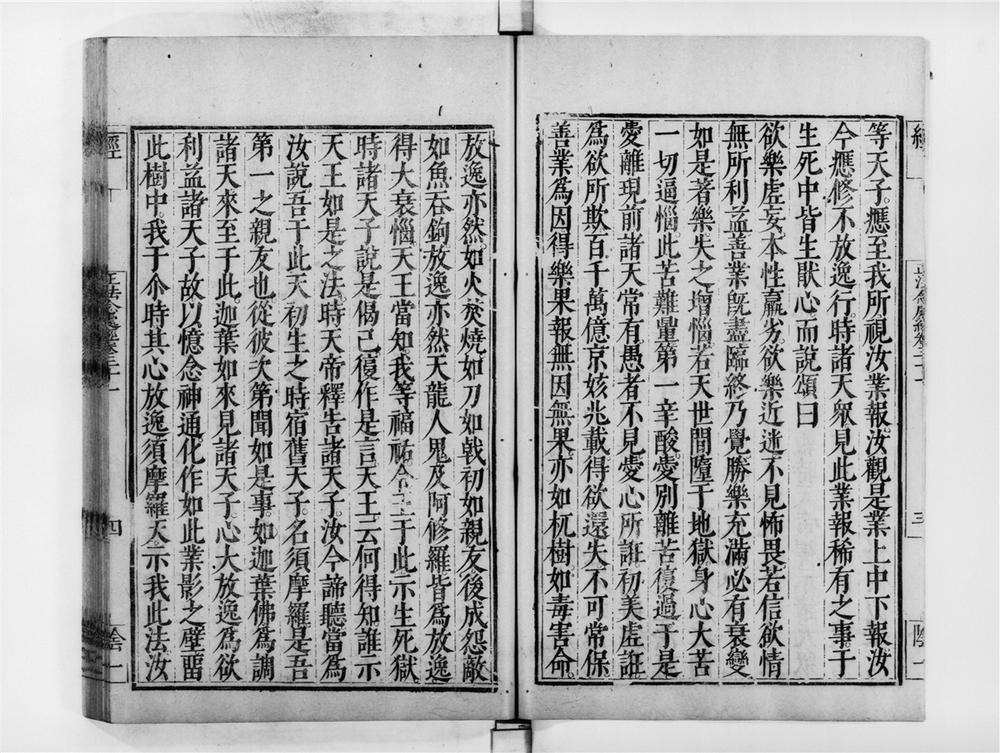 等天子應至我所視汝業報汝觀是業上中下報汝
今應修不放逸行時諸天眾見此業報稀有之事于
生死中皆生猒心而說頌曰
欲樂虛妄本性羸劣欲樂近迷不見怖畏若信欲情
無所利益善業旣盡臨終乃覺勝樂充滿必有衰變
如是著樂失之增惱若天世間墮于地獄身心大苦
一切逼惱此苦難量第一辛酸愛別離苦復過于是
愛離現前諸天常有愚者不見愛心所誑初美虛誑
爲欲所欺百千萬億京姟兆載得欲還失不可常保
善業爲因得樂果報無因無果亦如杌樹如毒害命
經
三
陰一
放逸亦然如火焚燒如刀如戟初如親友後成怨敵
如魚吞鉤放逸亦然天龍人鬼及阿修羅皆爲放逸
得大衰惱天王當知我等福祐令至于此示生死獄
時諸天子說是偈已復作是言天王云何得知誰示
天王如是之法時天帝釋告諸天子汝今諦聽當爲
汝說吾于此天初生之時宿舊天子名須摩羅是吾
第一之親友也從彼次第聞如是事如迦葉佛爲調
諸天來至于此迦葉如來見諸天子心大放逸爲欲
利益諸天子故以憶念神通化作如此業影之壁畱
此樹中我于尒時其心放逸須摩羅天示我此法汝
經
四
陰一